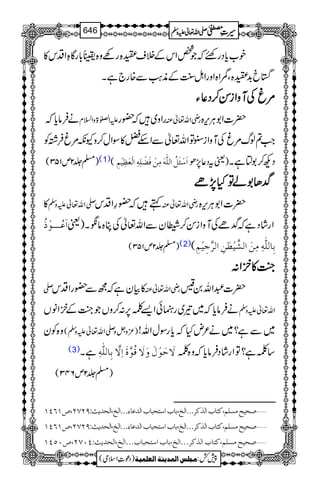 سیرت مصطفیٰ صلی اللہ تعالیٰ علیہ وسلم 646
خوب یاد رکھئے کہ جو شخص اس کے خلاف عقیدہ رکھے وہ یقیناً بارگاہ اقدس کا
گستاخ، بد عقیدہ، گمراہ اور اہل سنت کے مذہب سے خارج ہے۔
مرغ کی آواز سن کر دعاء
حضرت ابوہریرہ رضی اللہ تعالیٰ عنہ راوی ہیں کہ حضور علیہ الصلوٰۃ والسلام نے فرمایا کہ
جب تم لوگ مرغ کی آواز سنو تو اللہ تعالیٰ سے اس کے فضل کا سوال کرو کیونکہ مرغ فرشتہ کو
دیکھ کر بولتا ہے۔ (یعنی یہ دعا پڑھو اَسْئَلُ اللّٰهَ مِنْ فَضْلِهِ الْعَظِيْمِ) (1) (مسلم جلد۲ ص۳۵۱)
گدھا بولے تو کیا پڑھے
حضرت ابوہریرہ رضی اللہ تعالیٰ عنہ کہتے ہیں کہ حضور اقدس صلی اللہ تعالیٰ علیہ وسلم کا
ارشاد ہے کہ گدھے کی آواز سن کر شیطان سے اللہ تعالیٰ کی پناہ مانگو۔ (یعنی اَعُوْذُ
بِاللّٰهِ مِنَ الشَّيْطٰنِ الرَّجِيْمِ) (2) (مسلم جلد۲ ص۳۵۱)
جنت کا خزانہ
حضرت عبداللہ بن قیس رضی اللہ تعالیٰ عنہ کا بیان ہے کہ مجھ سے حضور اقدس صلی
اللہ تعالیٰ علیہ وسلم نے فرمایا کہ کیا میں تیری رہنمائی ایسے کلمہ پر نہ کروں جو جنت کے خزانوں
میں سے ہے؟ میں نے عرض کیا کہ یا رسول اللہ! (عزوجل وصلی اللہ تعالیٰ علیہ وسلم) وہ کون
سا کلمہ ہے؟ تو ارشاد فرمایا کہ وہ کلمہ لَا حَوْلَ وَلَا قُوَّةَ اِلَّا بِاللّٰهِ ہے۔ (3)
(مسلم جلد۲ ص۳۴۶)
صحیح مسلم، کتاب الذکر...الخ، باب استحباب الدعاء...الخ، الحدیث:۲۷۲۹، ص۱۴۶۱
صحیح مسلم، کتاب الذکر...الخ، باب استحباب الدعاء...الخ، الحدیث:۲۷۲۹، ص۱۴۶۱
صحیح مسلم، کتاب الذکر...الخ، باب استحباب...الخ، الحدیث:۲۷۰۴، ص۱۴۵۰
پیش کش: مجلس المدینۃ العلمیۃ (دعوت اسلامی)